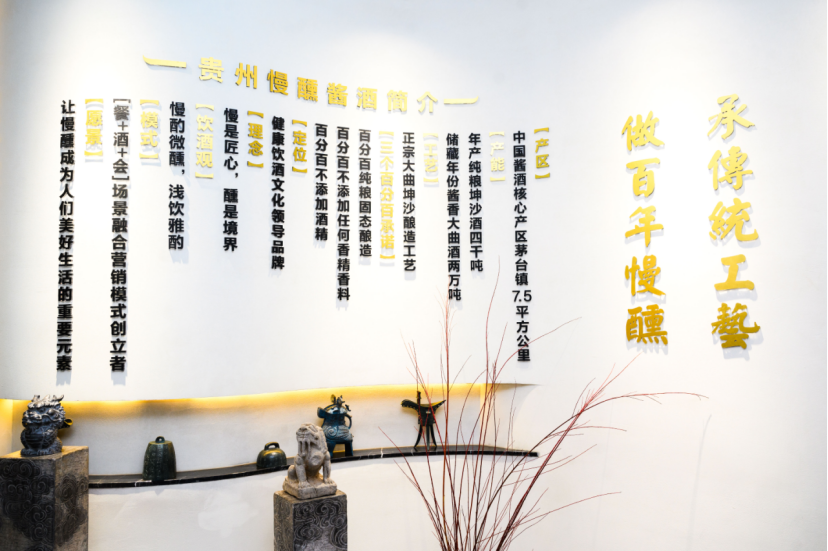 贵州慢醺酱酒简介
承傳統工藝
做百年慢醺
【产区】
中国酱酒核心产区茅台镇7.5平方公里
【产能】
年产纯粮坤沙酒四千吨
储藏年份酱香大曲酒两万吨
正宗大曲坤沙酿造工艺
【三个百分百承诺】
百分百纯粮固态酿造
百分百不添加任何香精香料
百分百不添加酒精
【定位】
健康饮酒文化领导品牌
【理念】
慢是匠心，醺是境界
【饮酒观】
慢酌微醺，浅饮雅酌
【模式】
[餐+酒+会]场景融合营销模式创立者
【愿景】
让慢醺成为人们美好生活的重要元素